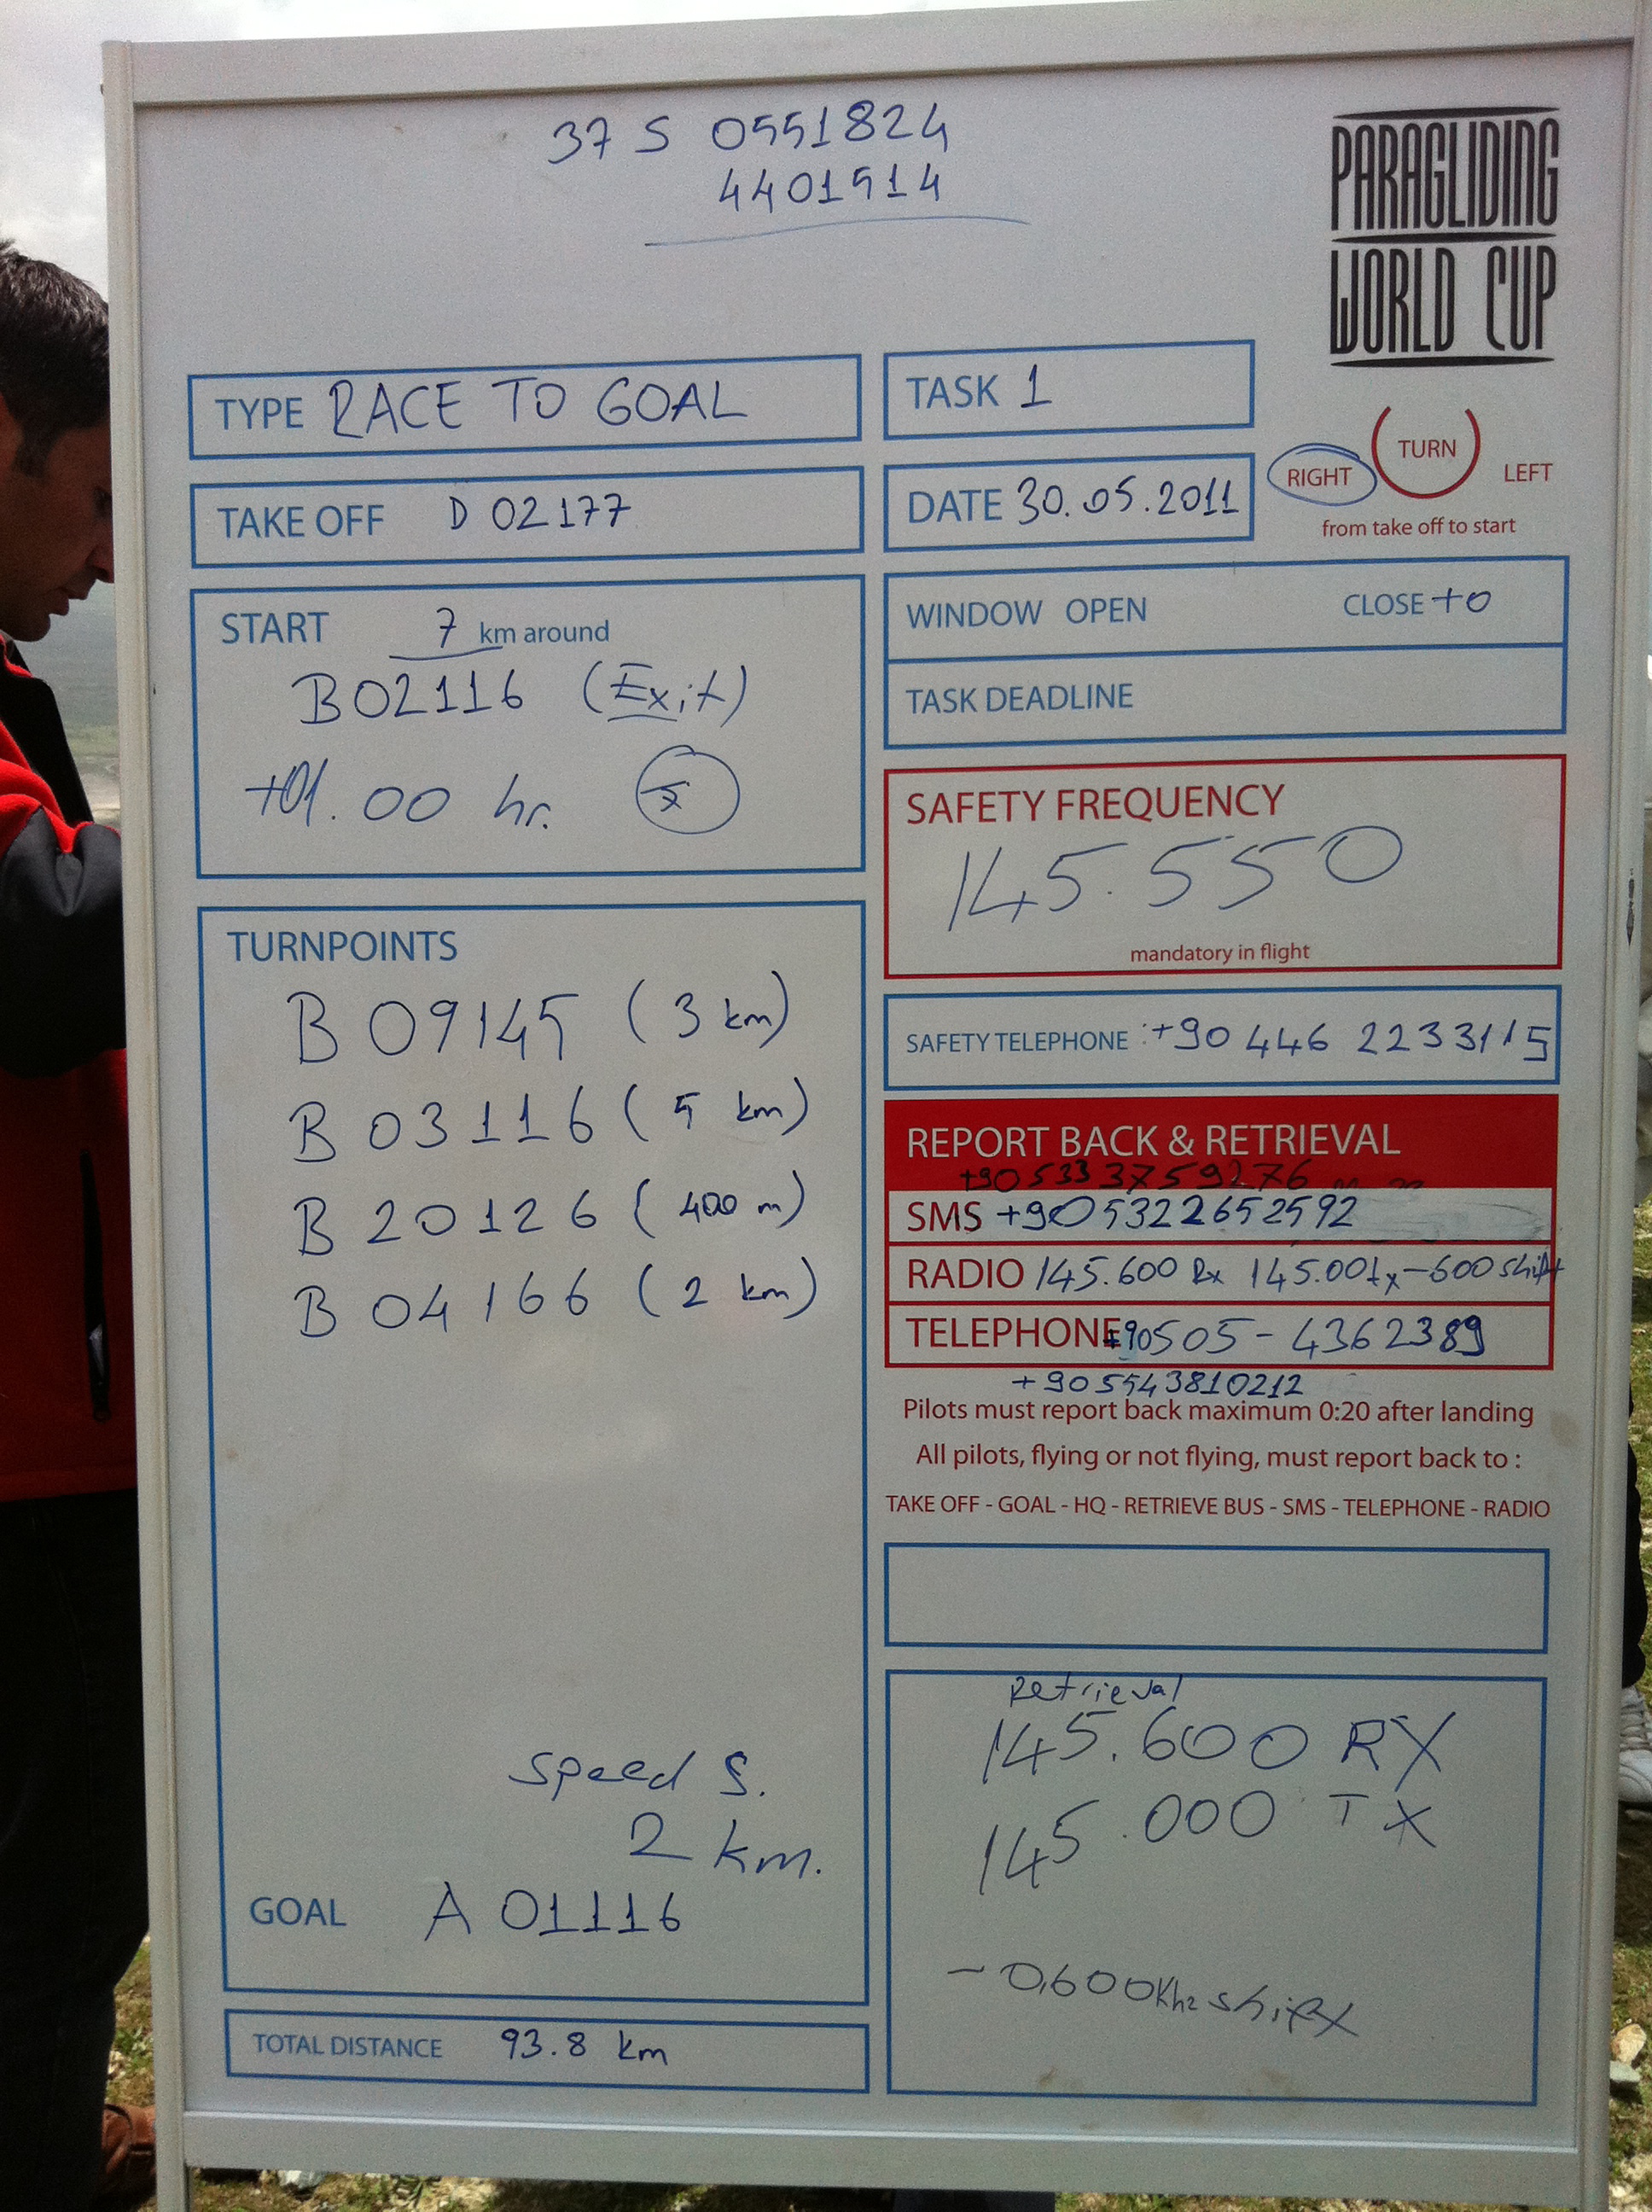 37 S 0551824
4401514
PARAGLIDING
WORLD CUP
TYPE RACE TO GOAL
TASK 1
TAKE OFF D 02177
DATE 30.05.2011
RIGHT TURN LEFT
from take off to start
START 7 km around
B02116 (Exit)
+01.00 hr.
WINDOW OPEN CLOSE +0
TASK DEADLINE
SAFETY FREQUENCY
145.550
mandatory in flight
TURNPOINTS
B 09145 (3 km)
B 03116 (5 km)
B 20126 (400 m)
B 04166 (2 km)
Speed S.
2 km.
GOAL A 01116
TOTAL DISTANCE 93.8 km
SAFETY TELEPHONE : +90 446 2233115
REPORT BACK & RETRIEVAL
+90 533 3759276
SMS +905322652592
RADIO 145.600 Rx 145.00tx -600 shift
TELEPHONE +90505-4362389
+905543810212
Pilots must report back maximum 0:20 after landing
All pilots, flying or not flying, must report back to :
TAKE OFF - GOAL - HQ - RETRIEVE BUS - SMS - TELEPHONE - RADIO
Retrieval
145.600 RX
145.000 TX
- 0,600Khz shift